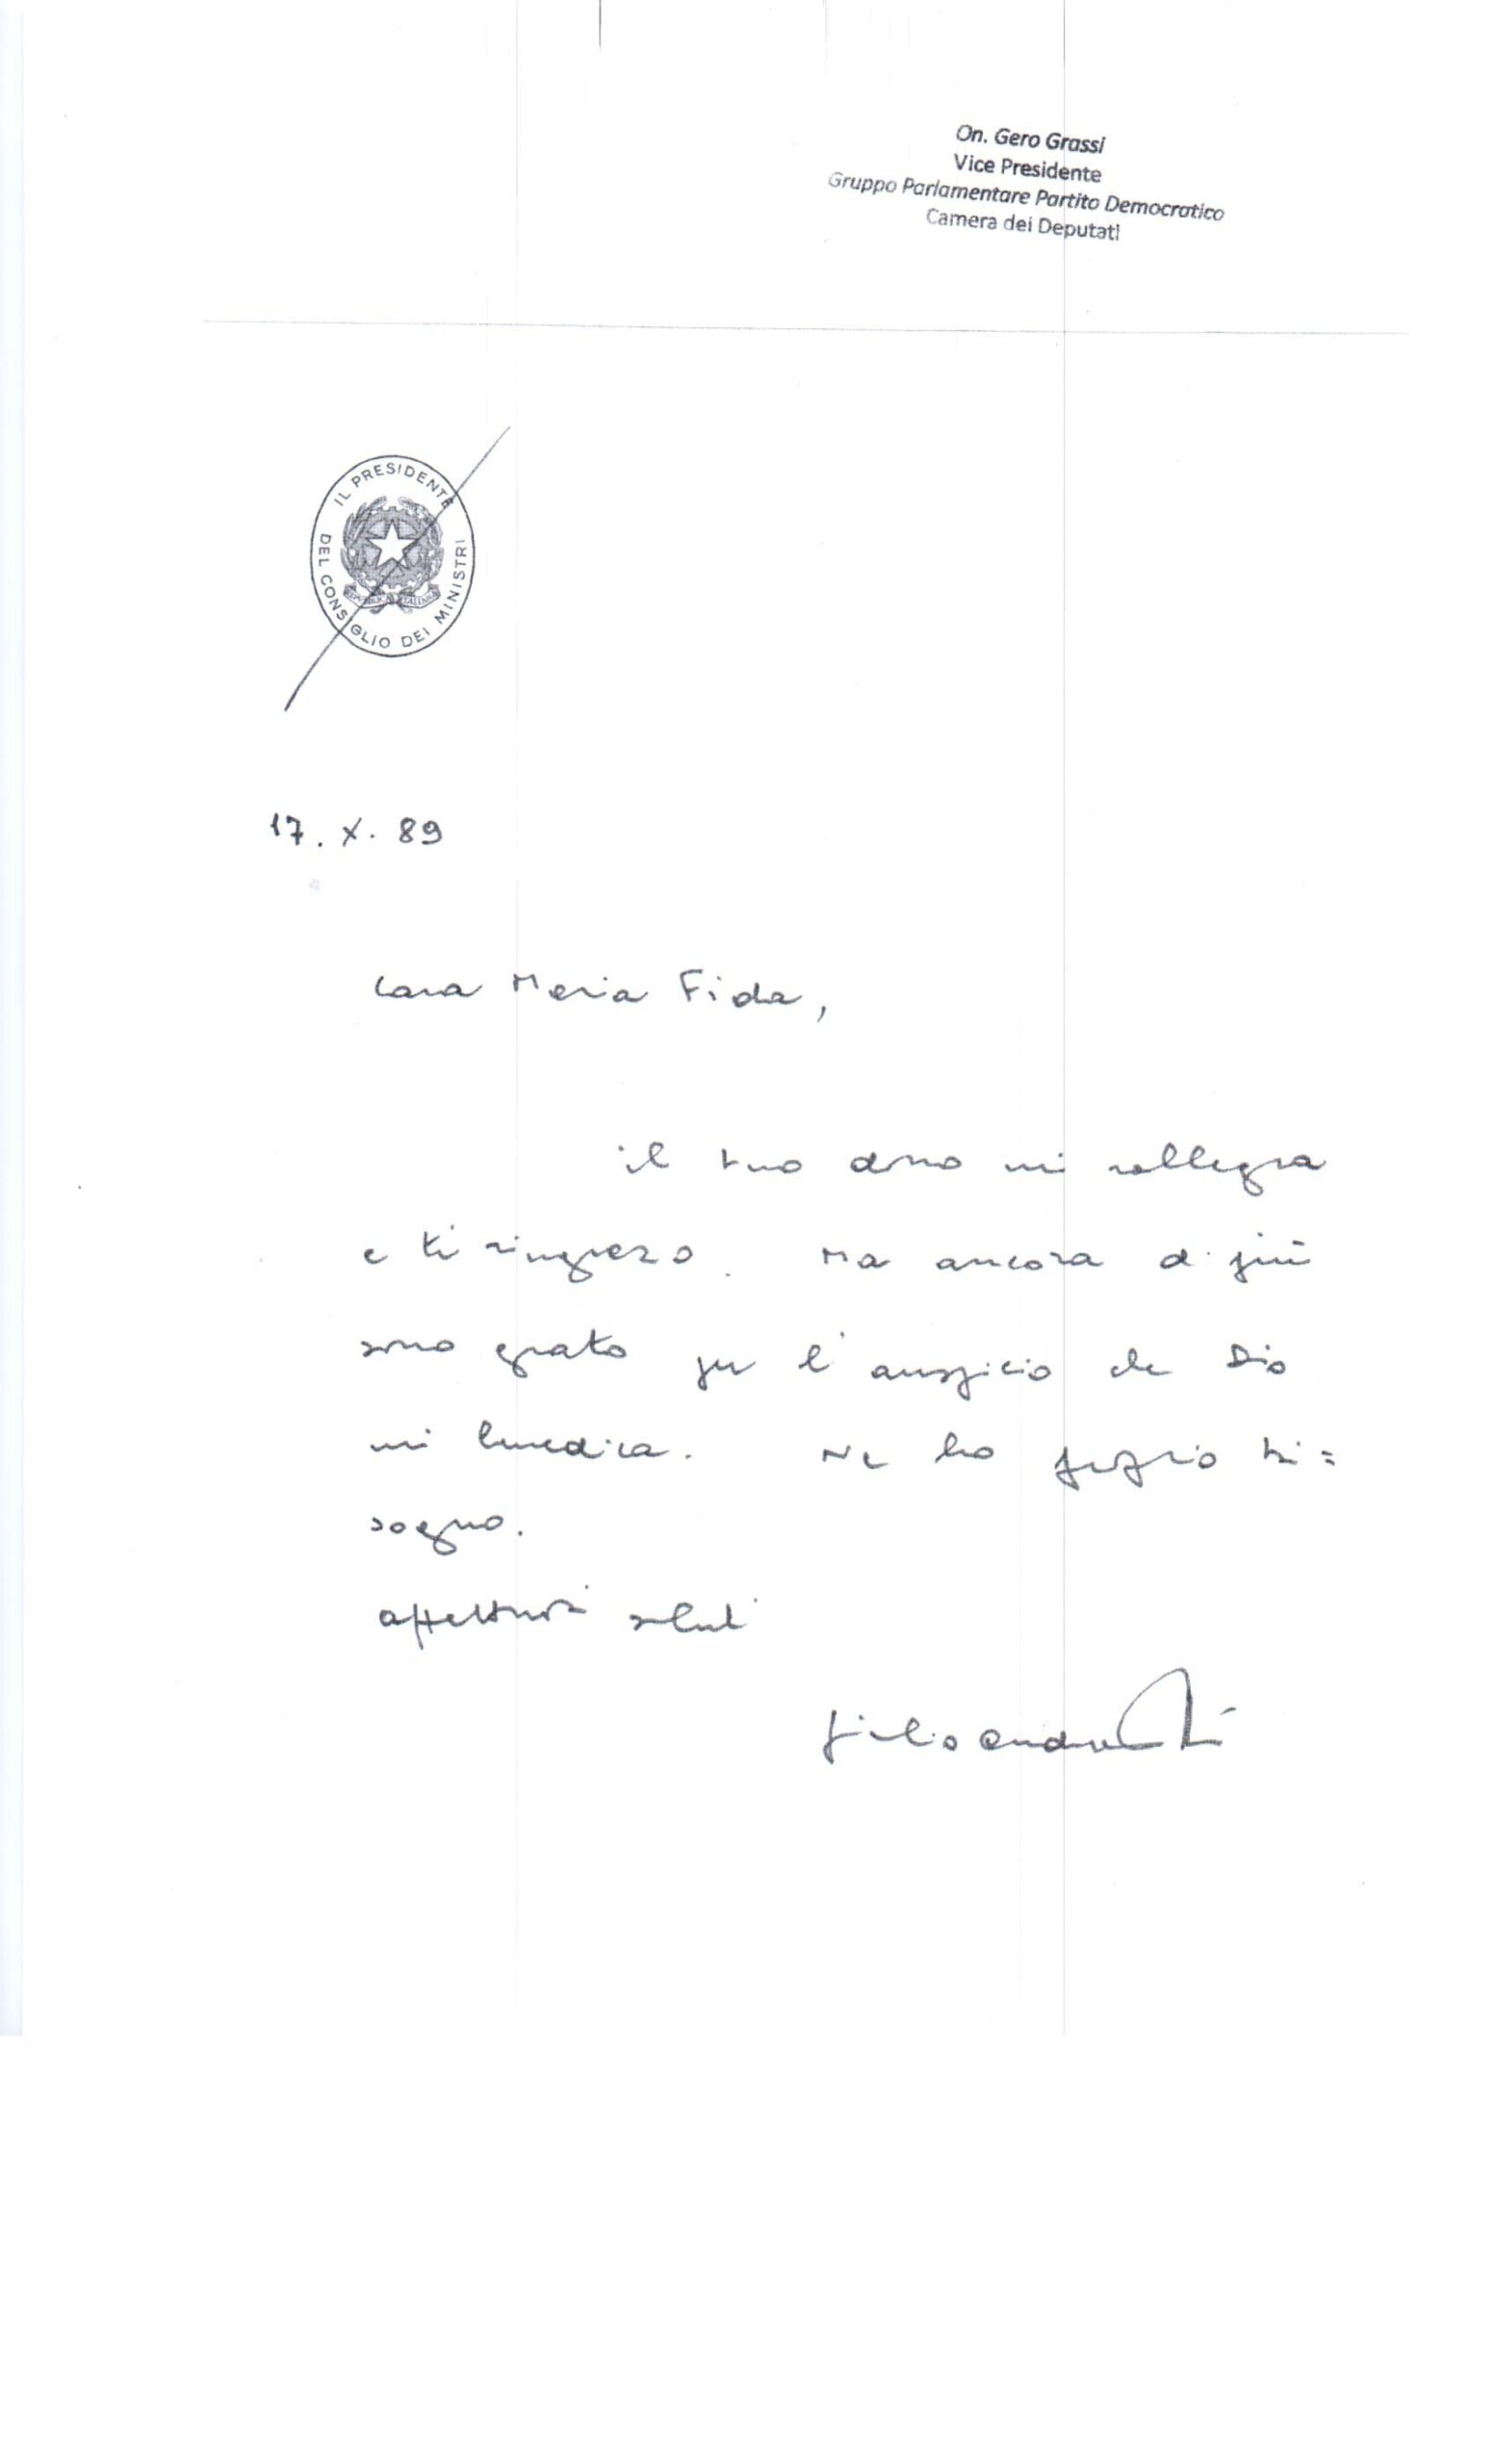 On. Gero Grassi
Vice Presidente
Gruppo Parlamentare Partito Democratico
Camera dei Deputati
IL PRESIDENTE DEL CONSIGLIO DEI MINISTRI
17. X. 89
Cara Maria Fida,
il tuo dono mi rallegra
e ti ringrazio. Ma ancora di più
sono grato per l'auspicio che Dio
mi benedica. Ne ho proprio bi=
sogno.
affettuosi saluti
Giulio Andreotti